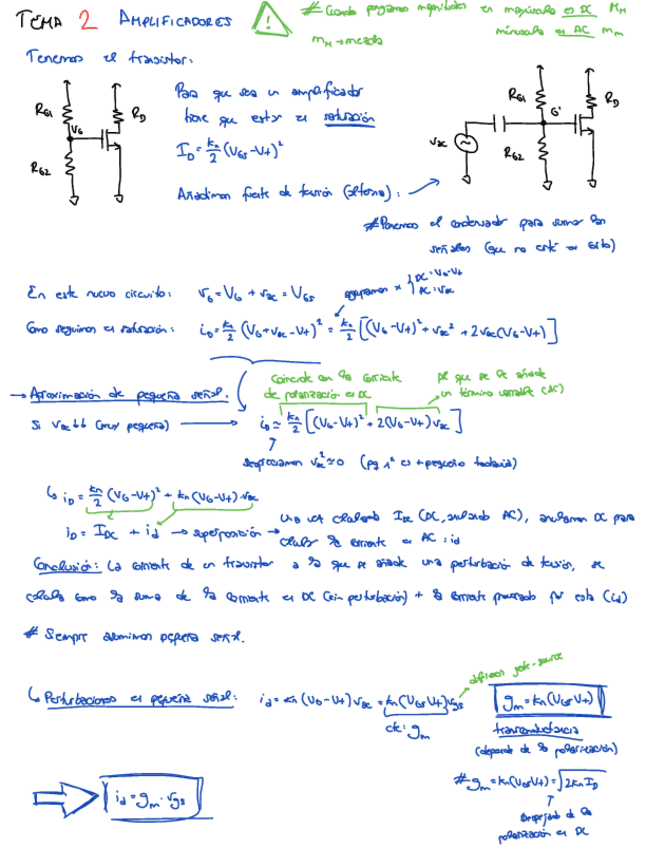 TEMA 2 AMPLIFICADORES
# Cuando pongamos magnitudes en mayúscula es DC M_M
minúscula es AC m_m
m_M → mezcla
Tenemos el transistor:
R_G1 R_D
V_G
R_G2
Para que sea un amplificador
tiene que estar en saturación
I_D = k_n/2 (V_GS - V_t)²
Añadimos fuente de tensión (alterna):
R_G1 R_D
G'
v_ac
R_G2
# Ponemos el condensador para sumar las
señales (que no esté en corto)
En este nuevo circuito: v_G = V_G + v_ac = V_GS
agrupamos x { DC: V_G - V_t
AC: v_ac
Como seguimos en saturación: i_D = k_n/2 (V_G + v_ac - V_t)² = k_n/2 [(V_G - V_t)² + v_ac² + 2v_ac(V_G - V_t)]
→ Aproximación de pequeña señal.
Coincide con la corriente
de polarización en DC
al que se le añade
un término variable (AC)
Si v_ac ↓↓ (muy pequeña) → i_D ≈ k_n/2 [(V_G - V_t)² + 2(V_G - V_t)v_ac]
despreciamos v_ac² ≈ 0 (pq 1² es + pequeño todavía)
↳ i_D = k_n/2 (V_G - V_t)² + k_n(V_G - V_t)·v_ac
i_D = I_DC + i_d → superposición → una vez calculado I_DC (DC, anulando AC), anulamos DC para
calcular la corriente en AC: i_d
Conclusión: La corriente de un transistor a la que se añade una perturbación de tensión, se
calcula como la suma de la corriente en DC (sin perturbación) + la corriente provocada por esta (i_d)
# Siempre asumimos pequeña señal.
↳ Perturbaciones en pequeña señal: i_d = k_n(V_G - V_t)v_ac = k_n(V_GS - V_t)v_gs
diferencia gate-source
cte: g_m
g_m = k_n(V_GS - V_t)
transconductancia
(depende de la polarización)
i_d = g_m · v_gs
# g_m = k_n(V_GS - V_t) = √2k_n I_D
Despejado de la
polarización en DC